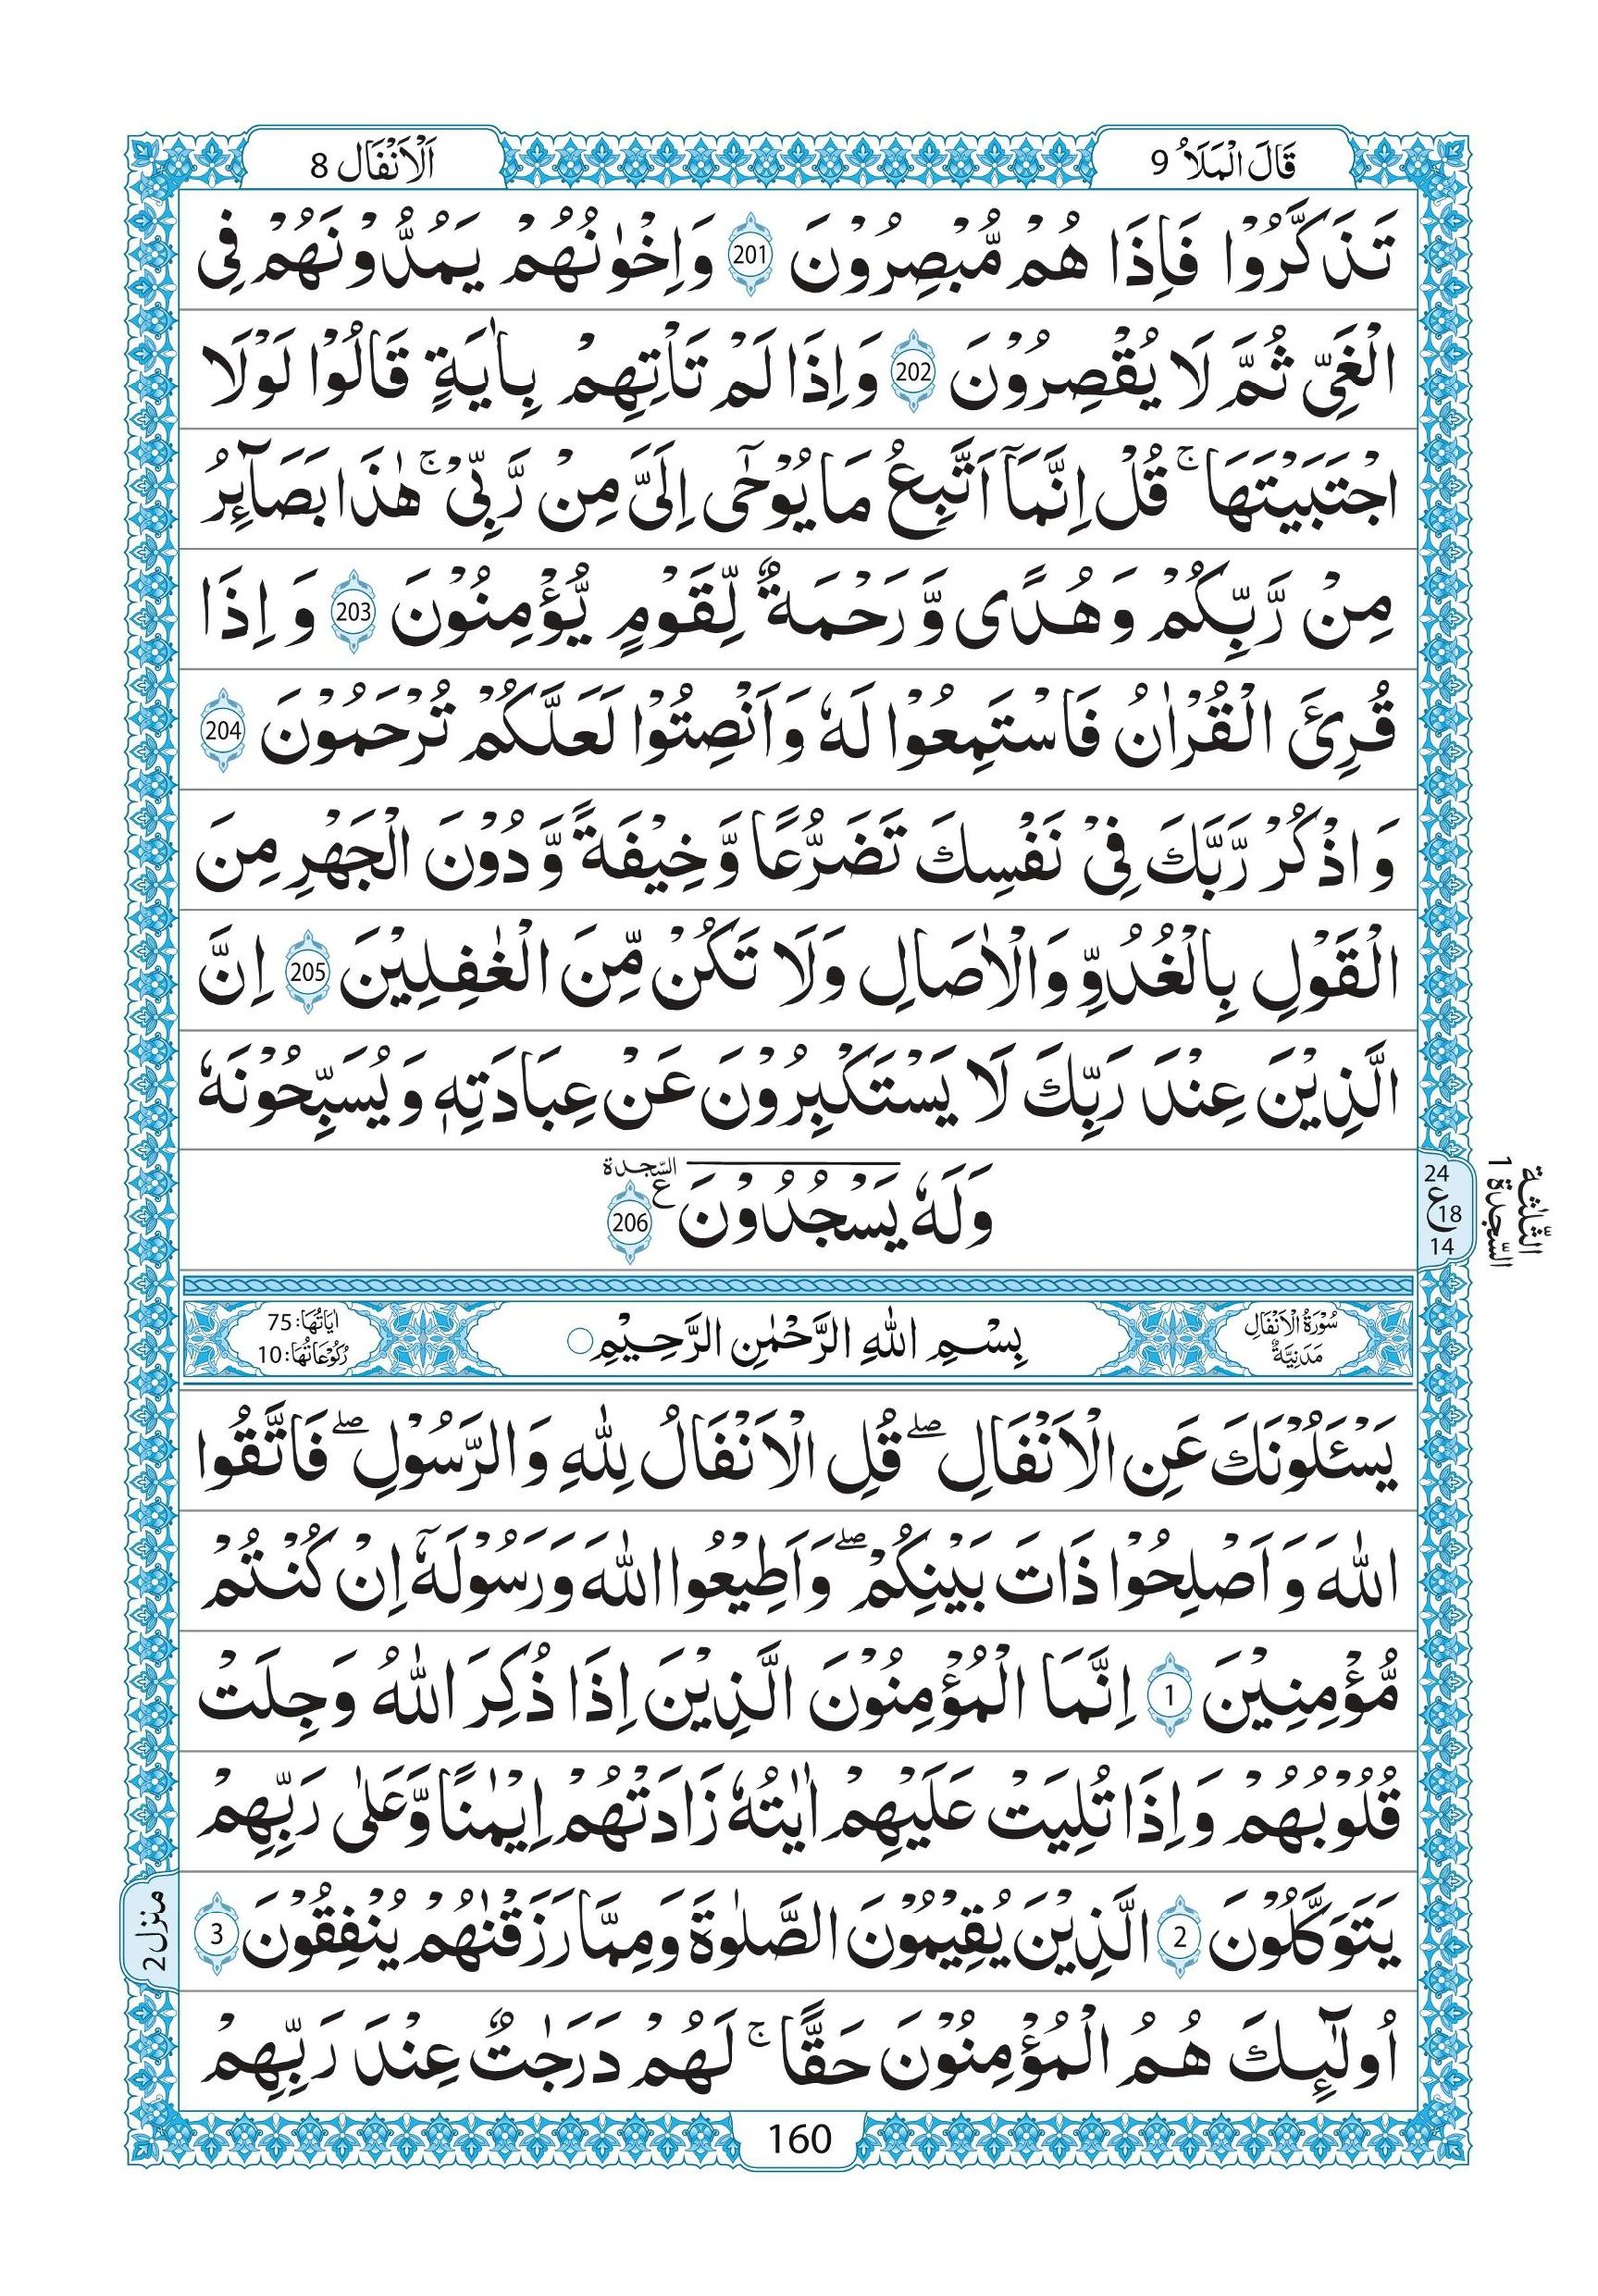 قَالَ الْمَلَاُ 9
اَلْاَنْفَال 8
تَذَكَّرُوْا فَاِذَا هُمْ مُّبْصِرُوْنَ 201 وَاِخْوٰنُهُمْ يَمُدُّوْنَهُمْ فِى
الْغَىِّ ثُمَّ لَا يُقْصِرُوْنَ 202 وَاِذَا لَمْ تَاْتِهِمْ بِاٰيَةٍ قَالُوْا لَوْلَا
اجْتَبَيْتَهَا ۚ قُلْ اِنَّمَاۤ اَتَّبِعُ مَا يُوْحٰۤى اِلَىَّ مِنْ رَّبِّىْ ۚ هٰذَا بَصَآئِرُ
مِنْ رَّبِّكُمْ وَهُدًى وَّرَحْمَةٌ لِّقَوْمٍ يُّؤْمِنُوْنَ 203 وَاِذَا
قُرِئَ الْقُرْاٰنُ فَاسْتَمِعُوْا لَهٗ وَاَنْصِتُوْا لَعَلَّكُمْ تُرْحَمُوْنَ 204
وَاذْكُرْ رَّبَّكَ فِىْ نَفْسِكَ تَضَرُّعًا وَّخِيْفَةً وَّدُوْنَ الْجَهْرِ مِنَ
الْقَوْلِ بِالْغُدُوِّ وَالْاٰصَالِ وَلَا تَكُنْ مِّنَ الْغٰفِلِيْنَ 205 اِنَّ
الَّذِيْنَ عِنْدَ رَبِّكَ لَا يَسْتَكْبِرُوْنَ عَنْ عِبَادَتِهٖ وَيُسَبِّحُوْنَهٗ
وَلَهٗ يَسْجُدُوْنَ ع السّجدة 206
24
ع 18
14
السّجدة 1
الثّلٰثة
سُوْرَةُ الْاَنْفَالِ
مَدَنِيَّةٌ
بِسْمِ اللّٰهِ الرَّحْمٰنِ الرَّحِيْمِ
اٰيَاتُهَا: 75
رُكُوْعَاتُهَا: 10
يَسْـَٔلُوْنَكَ عَنِ الْاَنْفَالِ ۖ قُلِ الْاَنْفَالُ لِلّٰهِ وَالرَّسُوْلِ ۖ فَاتَّقُوا
اللّٰهَ وَاَصْلِحُوْا ذَاتَ بَيْنِكُمْ ۖ وَاَطِيْعُوا اللّٰهَ وَرَسُوْلَهٗۤ اِنْ كُنْتُمْ
مُّؤْمِنِيْنَ 1 اِنَّمَا الْمُؤْمِنُوْنَ الَّذِيْنَ اِذَا ذُكِرَ اللّٰهُ وَجِلَتْ
قُلُوْبُهُمْ وَاِذَا تُلِيَتْ عَلَيْهِمْ اٰيٰتُهٗ زَادَتْهُمْ اِيْمٰنًا وَّعَلٰى رَبِّهِمْ
يَتَوَكَّلُوْنَ 2 الَّذِيْنَ يُقِيْمُوْنَ الصَّلٰوةَ وَمِمَّا رَزَقْنٰهُمْ يُنْفِقُوْنَ 3
منزل 2
اُولٰٓئِكَ هُمُ الْمُؤْمِنُوْنَ حَقًّا ۚ لَهُمْ دَرَجٰتٌ عِنْدَ رَبِّهِمْ
160